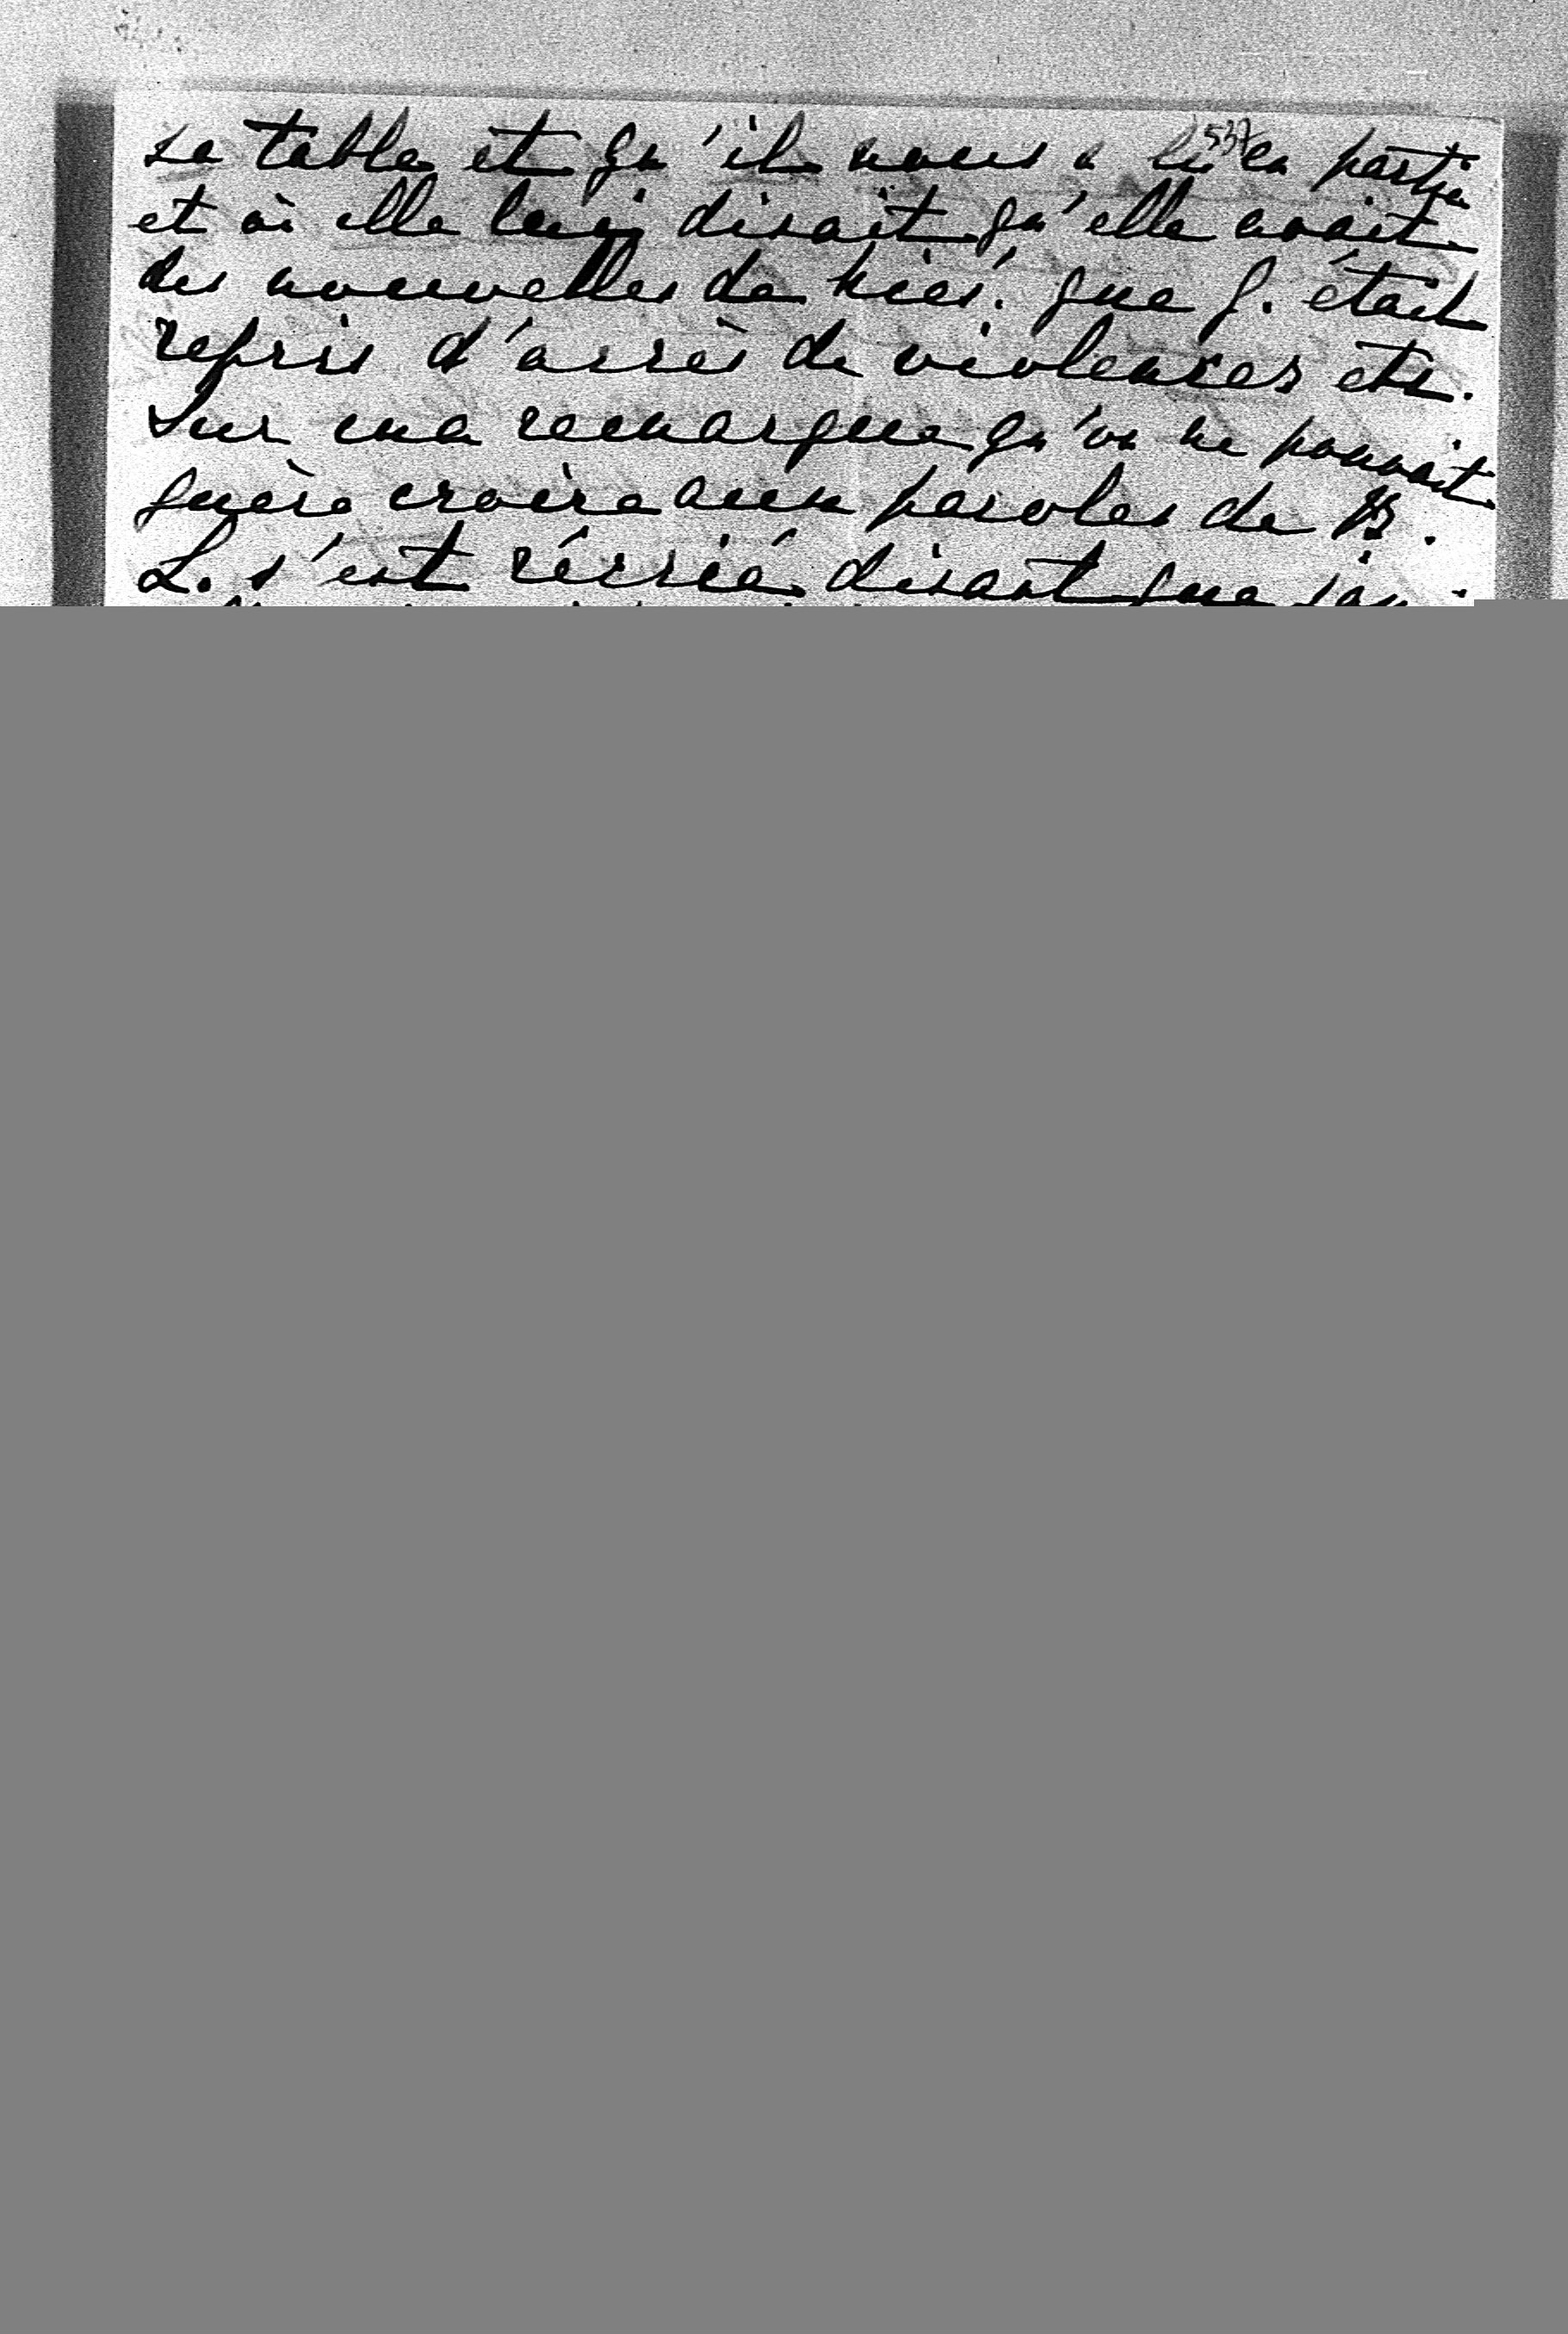 sa table et qu'il nous a lu en partie
537
et où elle lui disait qu'elle avait
des nouvelles de que J. était
repris d'accès de violences etc.
Sur ma remarque qu'on ne pouvait
guère croire aux paroles de B.
L. s'est récrié disant que